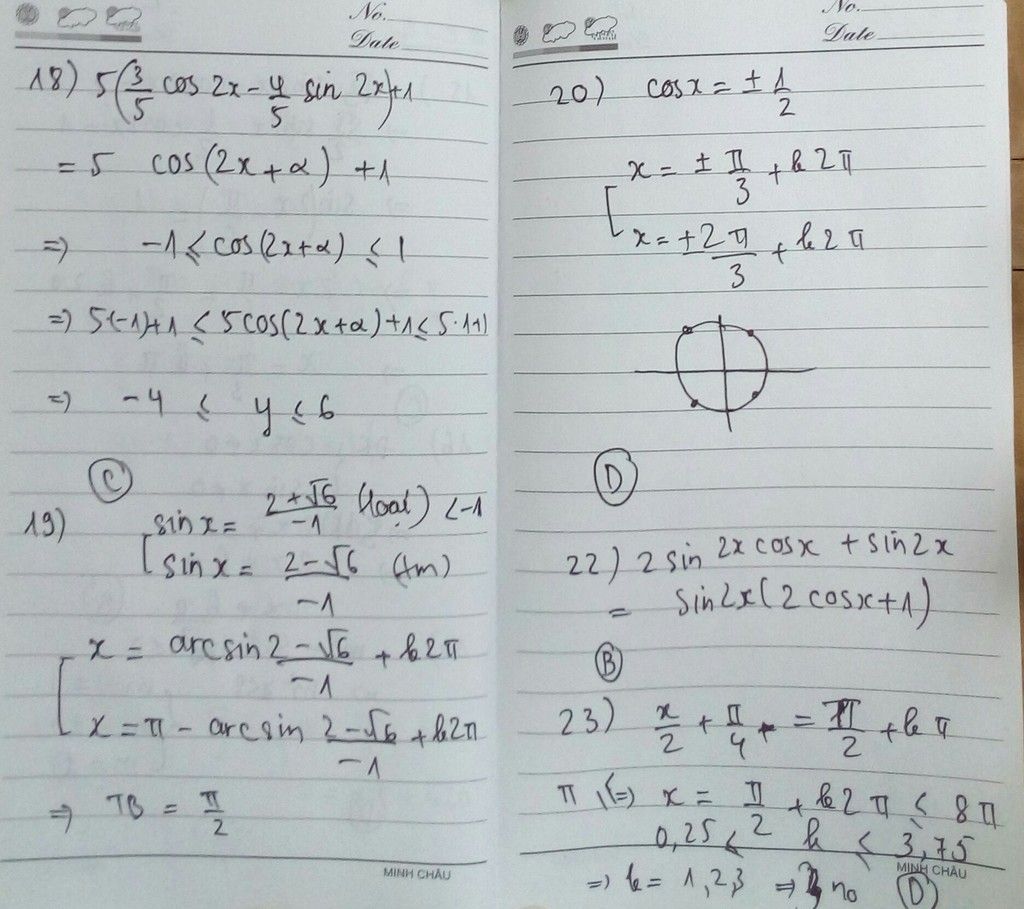 No.
Date
18) 5(3/5 cos 2x - 4/5 sin 2x)+1
= 5 cos(2x+α) +1
=> -1 ≤ cos(2x+α) ≤ 1
=> 5(-1)+1 ≤ 5cos(2x+α)+1 ≤ 5·1+1
=> -4 ≤ y ≤ 6
C
19) sin x = (2+√6)/-1 (loại) <-1
[ sin x = (2-√6)/-1 (tm)
x = arcsin (2-√6)/-1 + k2π
[ x = π - arcsin (2-√6)/-1 + k2π
=> TB = π/2
MINH CHÂU
No.
Date
20) cosx = ± 1/2
x = ± π/3 + k2π
[ x = ± 2π/3 + k2π
D
22) 2sin 2x cosx + sin2x
= sin2x(2cosx+1)
B
23) x/2 + π/4 = π/2 + kπ
π ≤ (=) x = π/2 + k2π ≤ 8π
0,25 ≤ k ≤ 3,75
MINH CHÂU
=> k = 1,2,3 => 3 no D